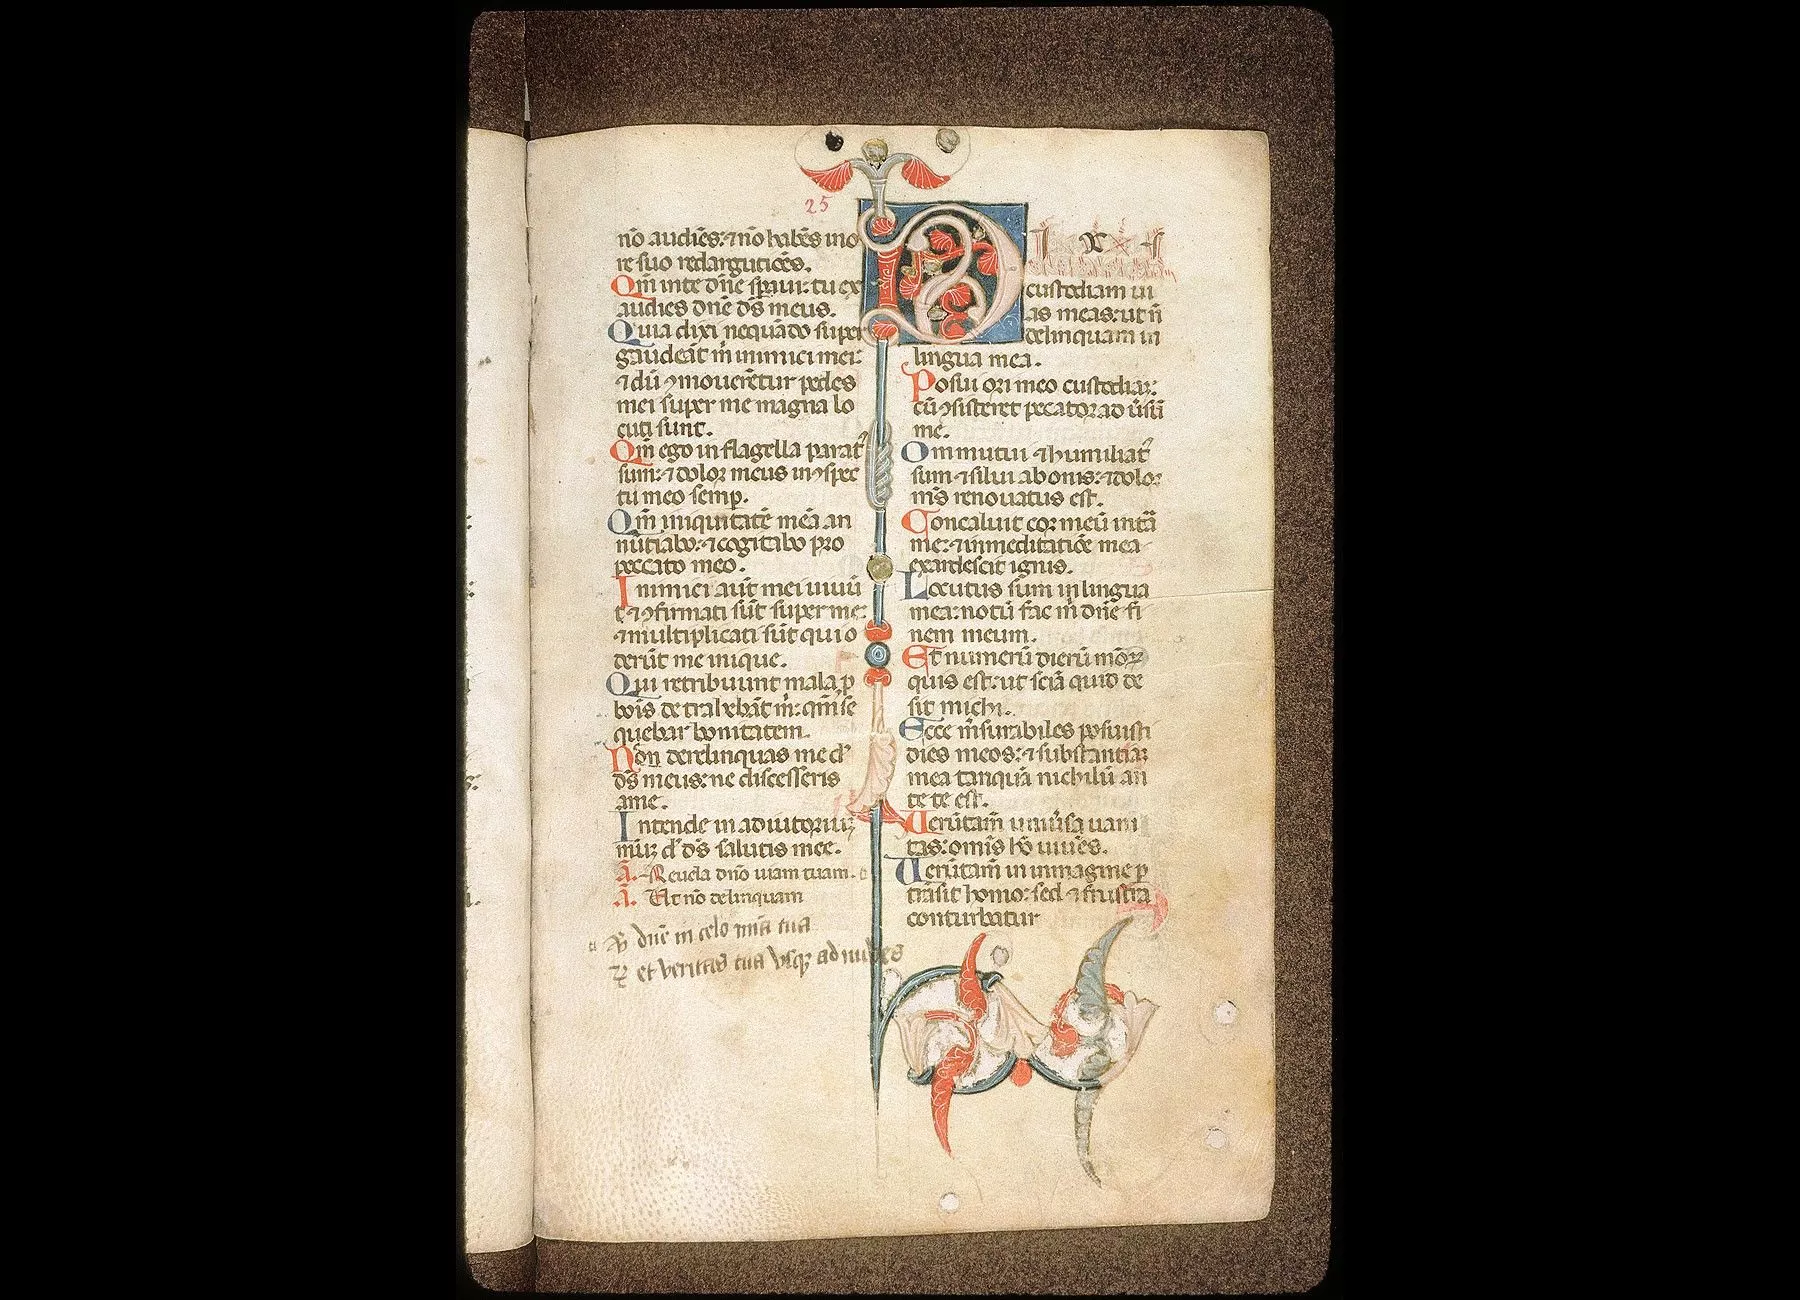 25
nō audiēs: ⁊ nō habēs in o
re suo redargutiōēs.
Qm̄ in te dn̄e sp̄aui: tu ex
audies dn̄e ds̄ meus.
Quia dixi nequādo super
gaudeāt m̄ inimici mei:
⁊ dū ꝯmouerētur pedes
mei super me magna lo
cuti sunt.
Qm̄ ego in flagella parat᷒
sum: ⁊ dolor meus in ꝯspec
tu meo semp.
Qm̄ iniquitatē meā an
nūtiabo: ⁊ cogitabo pro
peccato meo.
Inimici aūt mei uiuū
t ⁊ ꝯfirmati sūt super me:
⁊ multiplicati sūt qui o
derūt me inique.
Qui retribuunt mala p
bōis detrahebāt m̄: qm̄ se
quebar bonitatem.
Non derelinquas me d᷒
ds̄ meus: ne discesseris
a me.
Intende in adiutoriuꝫ
miuꝫ d᷒ ds̄ salutis mee.
A. Reuela dn̄o uiam tuam.
A. Et nō delinquam
℣ dn̄e in celo mīa tua
℟ et veritas tua vsqꝫ ad nubes
Dixi
custodiam ui
as meas: ut n̄
delinquam in
lingua mea.
Posui ori meo custodiaꝫ:
cū ꝯsisteret peccator ad ūsū
me.
Ommutui ⁊ humiliat᷒
sum ⁊ silui a bonis: ⁊ dolor
ms̄ renouatus est.
Concaluit cor meū intā
me: ⁊ in meditatiōe mea
exardescit ignis.
Locutus sum in lingua
mea: notū fac m̄ dn̄e fi
nem meum.
Et numerū dierū meoꝝ
quis est: ut sciā quid de
sit michi.
Ecce m̄surabiles posuisti
dies meos: ⁊ substantiaꝫ
mea tanquā nichilū an
te te est.
Uerūtam̄ uniūsa uani
tas: omīs hō uiuēs.
Uerūtam̄ in inmagine p
trāsit homo: sed ⁊ frustra
conturbatur